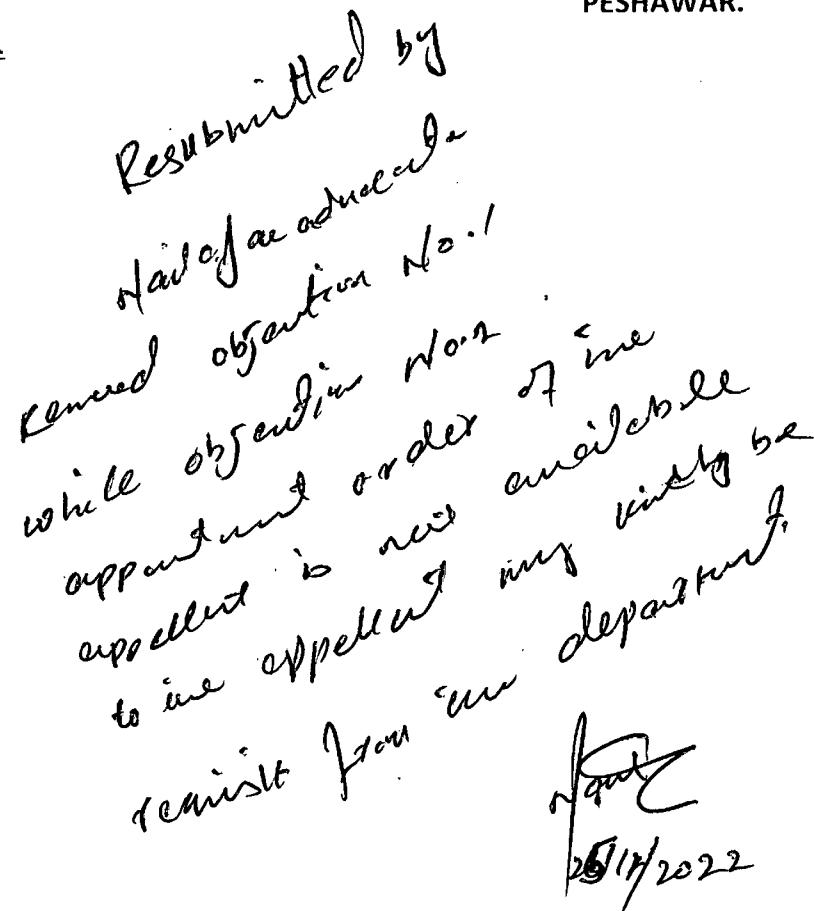 PESHAWAR.
Resubmitted by
removed objection No.1
while objection No.2
appointment order of the
appellant is not available
to the appellant may kindly be
requisit from the department.
/12/2022